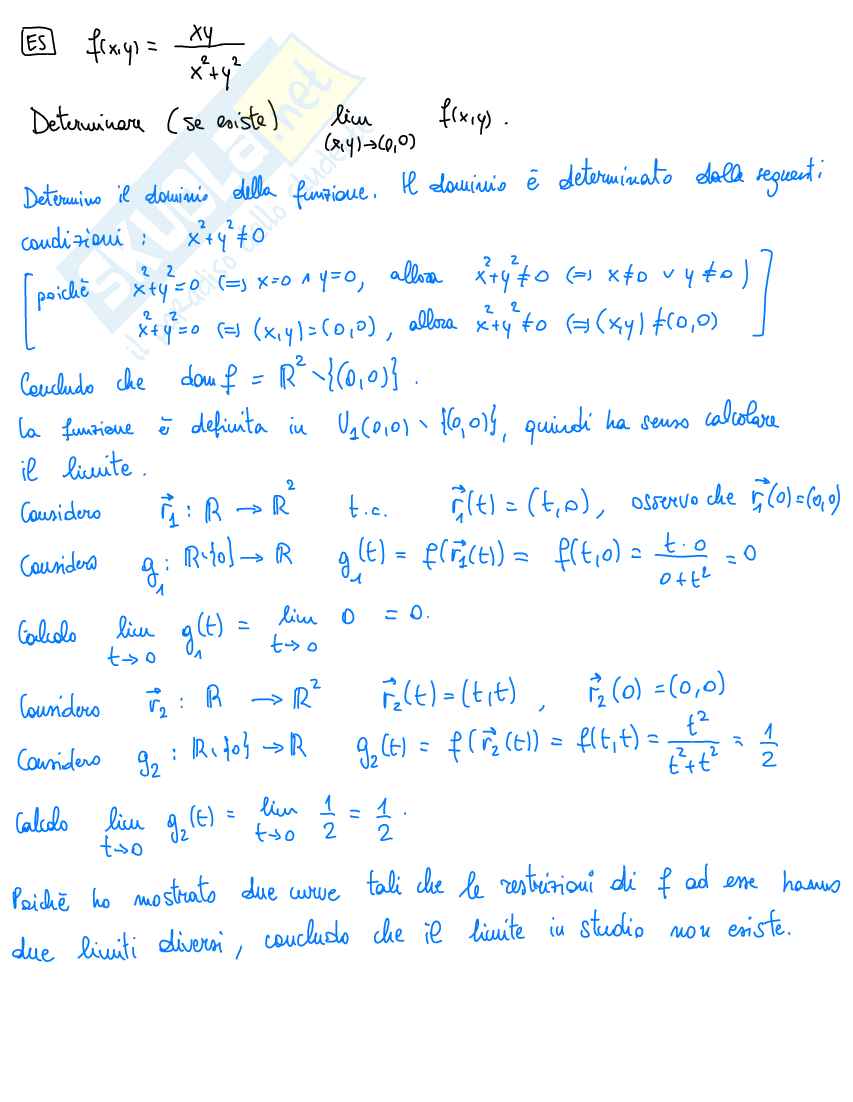 ES f(x,y) = xy / x²+y²
Determinare (se esiste) lim (x,y)→(0,0) f(x,y).
Determino il dominio della funzione. Il dominio è determinato dalle seguenti
condizioni : x²+y²≠0
[poichè x²+y²=0 (=) x=0 ∧ y=0, allora x²+y²≠0 (=) x≠0 ∨ y≠0)
x²+y²=0 (=) (x,y)=(0,0), allora x²+y²≠0 (=) (x,y)≠(0,0)]
Concludo che dom f = ℝ² \ {(0,0)}.
La funzione è definita in U₁(0,0) \ {(0,0)}, quindi ha senso calcolare
il limite.
Considero r⃗₁ : ℝ → ℝ² t.c. r⃗₁(t) = (t,0), osservo che r⃗₁(0)=(0,0)
Considero g₁ : ℝ\{0} → ℝ g₁(t) = f(r⃗₁(t)) = f(t,0) = t·0 / 0+t² = 0
Calcolo lim t→0 g₁(t) = lim t→0 0 = 0.
Considero r⃗₂ : ℝ → ℝ² r⃗₂(t)=(t,t), r⃗₂(0)=(0,0)
Considero g₂ : ℝ\{0} → ℝ g₂(t) = f(r⃗₂(t)) = f(t,t) = t² / t²+t² = 1/2
Calcolo lim t→0 g₂(t) = lim t→0 1/2 = 1/2.
Poichè ho mostrato due curve tali che le restrizioni di f ad esse hanno
due limiti diversi, concludo che il limite in studio non esiste.
SKUOLA.net
il paradiso dello studente